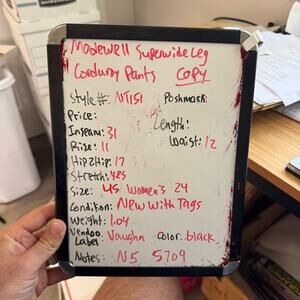 Madewell Superwide Leg
Corduroy Pants COPY
Style#: NT151 Poshmark:
Price:
Length:
Inseam: 31 Waist: 12
Rise: 11
Hip 2 Hip: 17
Stretch: yes
Size: US Women's 24
Condition: New with Tags
Weight: 1.04
Vendoo Label Vaughn color: black
Notes: N5 5709